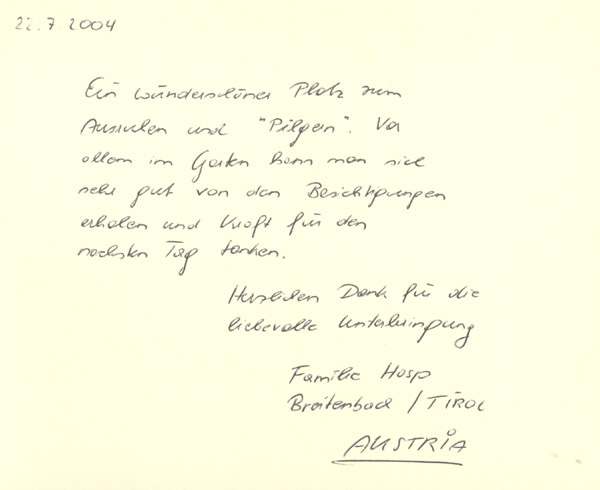 22.7 2004
Ein wunderschöner Platz zum
Ausruhen und "Pilgern". Vor
allem im Garten kann man sich
sehr gut von den Besichtigungen
erholen und Kraft für den
nächsten Tag tanken.
Herzlichen Dank für die
liebevolle Unterbringung
Familie Hosp
Breitenbach / TIROL
AUSTRIA